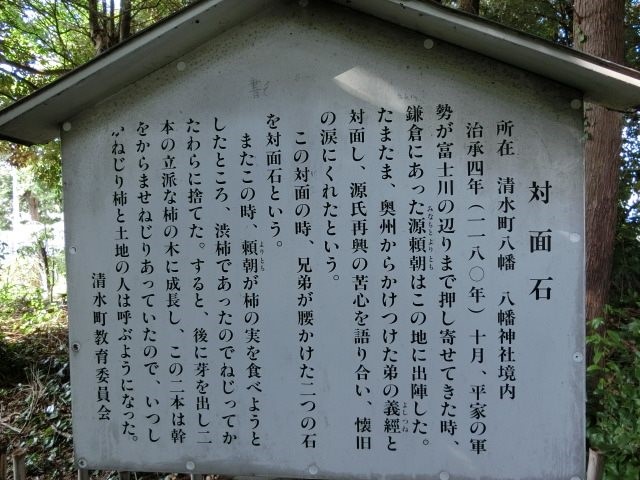 対面石
所在　清水町八幡　八幡神社境内
治承四年（一一八〇年）十月、平家の軍
勢が富士川の辺りまで押し寄せてきた時、
鎌倉にあった源頼朝はこの地に出陣した。
みなもとよりとも
たまたま、奥州からかけつけた弟の義經と
よしつね
対面し、源氏再興の苦心を語り合い、懐旧
の涙にくれたという。
この対面の時、兄弟が腰かけた二つの石
を対面石という。
またこの時、頼朝が柿の実を食べようと
よりとも
したところ、渋柿であったのでねじってか
たわらに捨てた。すると、後に芽を出し二
本の立派な柿の木に成長し、この二本は幹
をからませねじりあっていたので、いつし
かねじり柿と土地の人は呼ぶようになった。
清水町教育委員会